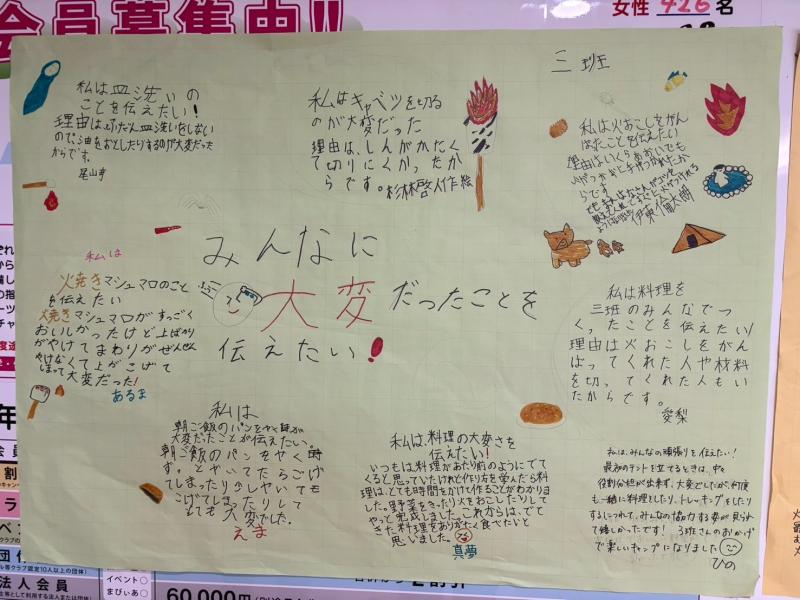 会員募集中!!
女性 426 名
三班
私は皿洗いの
ことを伝えたい！
理由はふだん皿洗いをしない
ので油をおとしたりするのが大変だった
からです。
私はキャベツを切る
のが大変だった
理由は、しんがかたく
て切りにくかったか
らです。
杉林啓人作 絵
私は火おこしをがん
ばたことを伝えたい
理由はいくらあおいでも
らです
伊東倫太朗
みんなに
大変だったことを
伝えたい！
私は
火焼きマシュマロのこと
を伝えたい
火焼きマシュマロがすっごく
おいしかったけど上ばかり
がやけてまわりがぜんぜん
やけなくて上がこげて
しまって大変だった！
あるま
私は料理を
三班のみんなでつ
くったことを伝えたい！
理由は火おこしをがん
ばってくれた人や材料
を切ってくれた人もい
たからです。
愛梨
私は
朝ご飯のパンをやく時が
大変だたことが伝えたい。
朝ご飯のパンをやく時
ず。とやいてたらこげ
てしまったり少しやいても
こげてしまったりして
とても大変でした。
えま
私は、料理の大変さを
伝えたい！
いつもは料理があたり前のようにでて
くると思っていたけれど作り方を学んだら料
理は、とても時間をかけて作ることがわかりま
した。野菜をきったり火をおこしたりして
やっと完成しました。これからは、でて
きた料理をありがたく食べたいと
思いました。
真夢
私は、みんなの頑張りを伝えたい！
最初のテントを立てるときは、中々
役割分担が出来ず、大変でしたが、何度
も一緒に料理としたり、トレッキングをしたり
するにつれて、みんなの協力する姿が見られ
て嬉しかったです！3班さんのおかげ
で楽しいキャンプになりました
ひの
法人会員
イベント〇
まびぃあ〇
60,000円